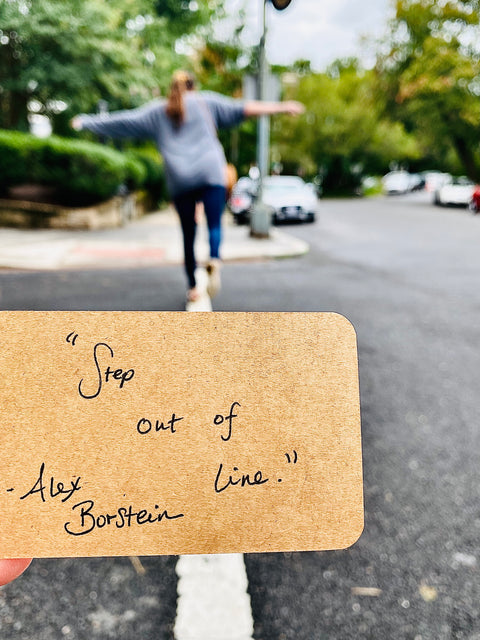 "Step
out of
line."
-Alex
Borstein